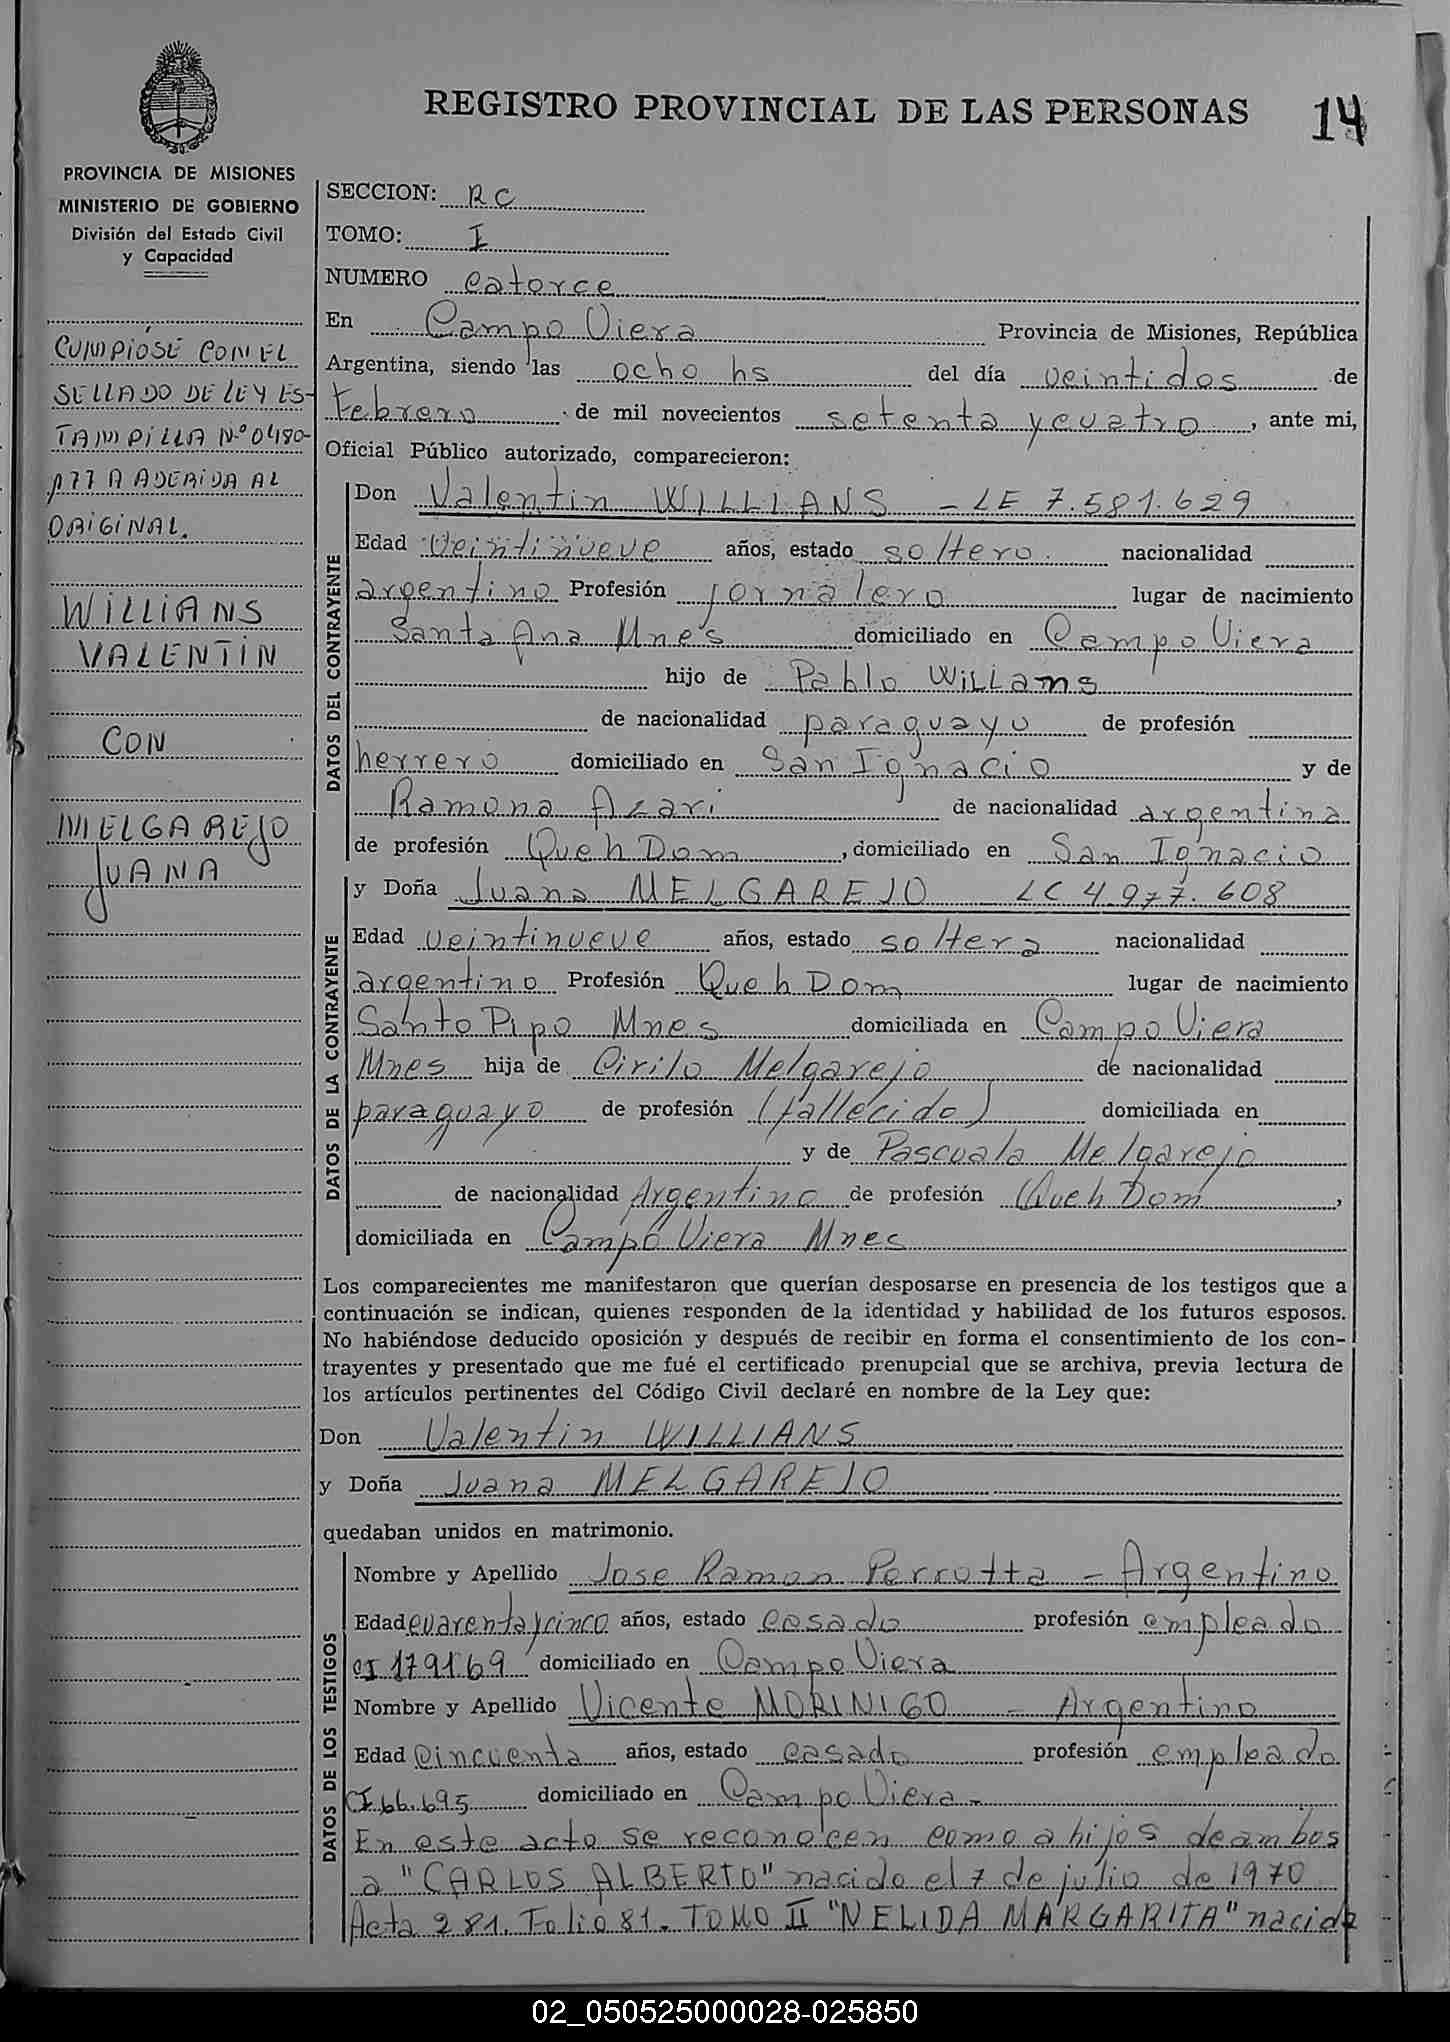 REGISTRO PROVINCIAL DE LAS PERSONAS 14
PROVINCIA DE MISIONES
MINISTERIO DE GOBIERNO
División del Estado Civil
y Capacidad
CUMPIÓSE CON EL
SELLADO DE LEY ES-
TAMPILLA N.º 0480-
A ADERIDA AL
ORIGINAL.
WILLIANS
VALENTIN
CON
MELGAREJO
JUANA
SECCION: RC
TOMO: I
NUMERO catorce
En Campo Viera Provincia de Misiones, República
Argentina, siendo las ocho hs del día veintidos de
febrero de mil novecientos setenta y cuatro, ante mi,
Oficial Público autorizado, comparecieron:
DATOS DEL CONTRAYENTE
Don Valentin WILLIANS - LE 7.581.629
Edad Veintinueve años, estado soltero nacionalidad
argentino Profesión jornalero lugar de nacimiento
Santa Ana Mnes domiciliado en Campo Viera
hijo de Pablo Willams
de nacionalidad paraguayo de profesión
herrero domiciliado en San Ignacio y de
Ramona Azari de nacionalidad argentina
de profesión Queh Dom, domiciliado en San Ignacio
DATOS DE LA CONTRAYENTE
y Doña Juana MELGAREJO LC 4.977.608
Edad veintinueve años, estado soltera nacionalidad
argentino Profesión Queh Dom lugar de nacimiento
Santo Pipo Mnes domiciliada en Campo Viera
Mnes hija de Cirilo Melgarejo de nacionalidad
paraguayo de profesión (fallecido) domiciliada en
y de Pascuala Melgarejo
de nacionalidad Argentino de profesión Queh Dom,
domiciliada en Campo Viera Mnes
Los comparecientes me manifestaron que querían desposarse en presencia de los testigos que a
continuación se indican, quienes responden de la identidad y habilidad de los futuros esposos.
No habiéndose deducido oposición y después de recibir en forma el consentimiento de los con-
trayentes y presentado que me fué el certificado prenupcial que se archiva, previa lectura de
los artículos pertinentes del Código Civil declaré en nombre de la Ley que:
Don Valentin WILLIANS
y Doña Juana MELGAREJO
quedaban unidos en matrimonio.
DATOS DE LOS TESTIGOS
Nombre y Apellido Jose Ramon Perrotta - Argentino
Edad cuarenta y cinco años, estado casado profesión empleado
CI 179169 domiciliado en Campo Viera
Nombre y Apellido Vicente MORINIGO - Argentino
Edad Cincuenta años, estado casado profesión empleado
CI 66.695 domiciliado en Campo Viera-
En este acto se reconocen como a hijos de ambos
a "CARLOS ALBERTO" nacido el 7 de julio de 1970
Acta 281. Folio 81. TOMO II "NELIDA MARGARITA" nacida
02_050525000028-025850